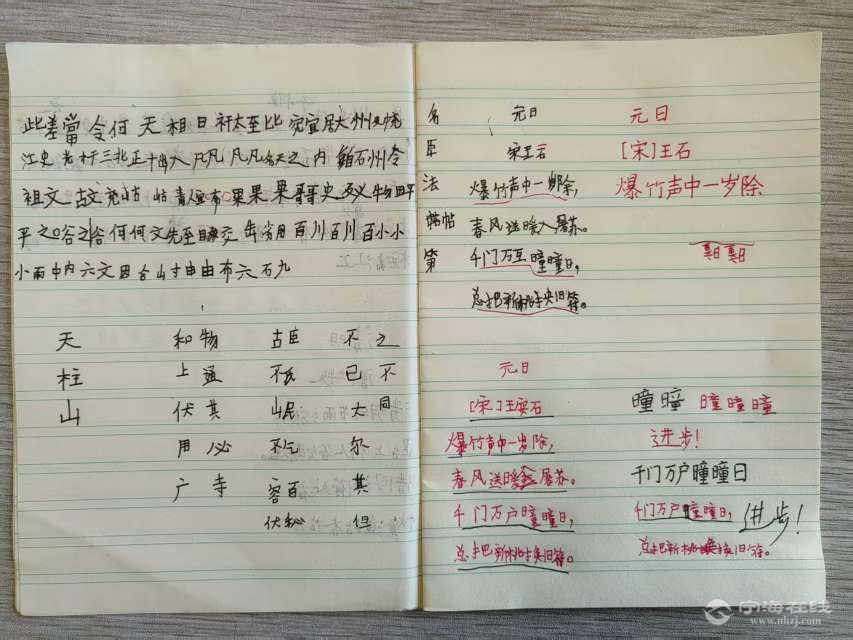 此差當令何天相日 太至比 宜居大州
江史 于三北正十出入凡凡凡凡 天之内 石州令
祖文古文 帖青 布果果果哥哥史及义物田平
平之 谷之 何何文先至 交 省用百川百川百小小
小雨中内六文因合山寸由由布六石九
天 和物 古臣 不之
柱 上通 不 已不
山 伏其 岷 大同
用必 不乞 尔
广寺 容百 其
伏秘 但
名 元日 元日
臣 宋王石 [宋]王石
法 爆竹声中一岁除, 爆竹声中一岁除
帖帖 春风送暖入屠苏。
第 千门万 曈曈日,
总把新桃换旧符。
元日
[宋]王安石 曈曈 曈曈曈
爆竹声中一岁除, 进步!
春风送暖 屠苏。 千门万户曈曈日
千门万户曈曈日, 千门万户曈曈日, 进步!
总把新桃换旧符。 总把新桃换旧符。
宁海在线
www.nhzj.com